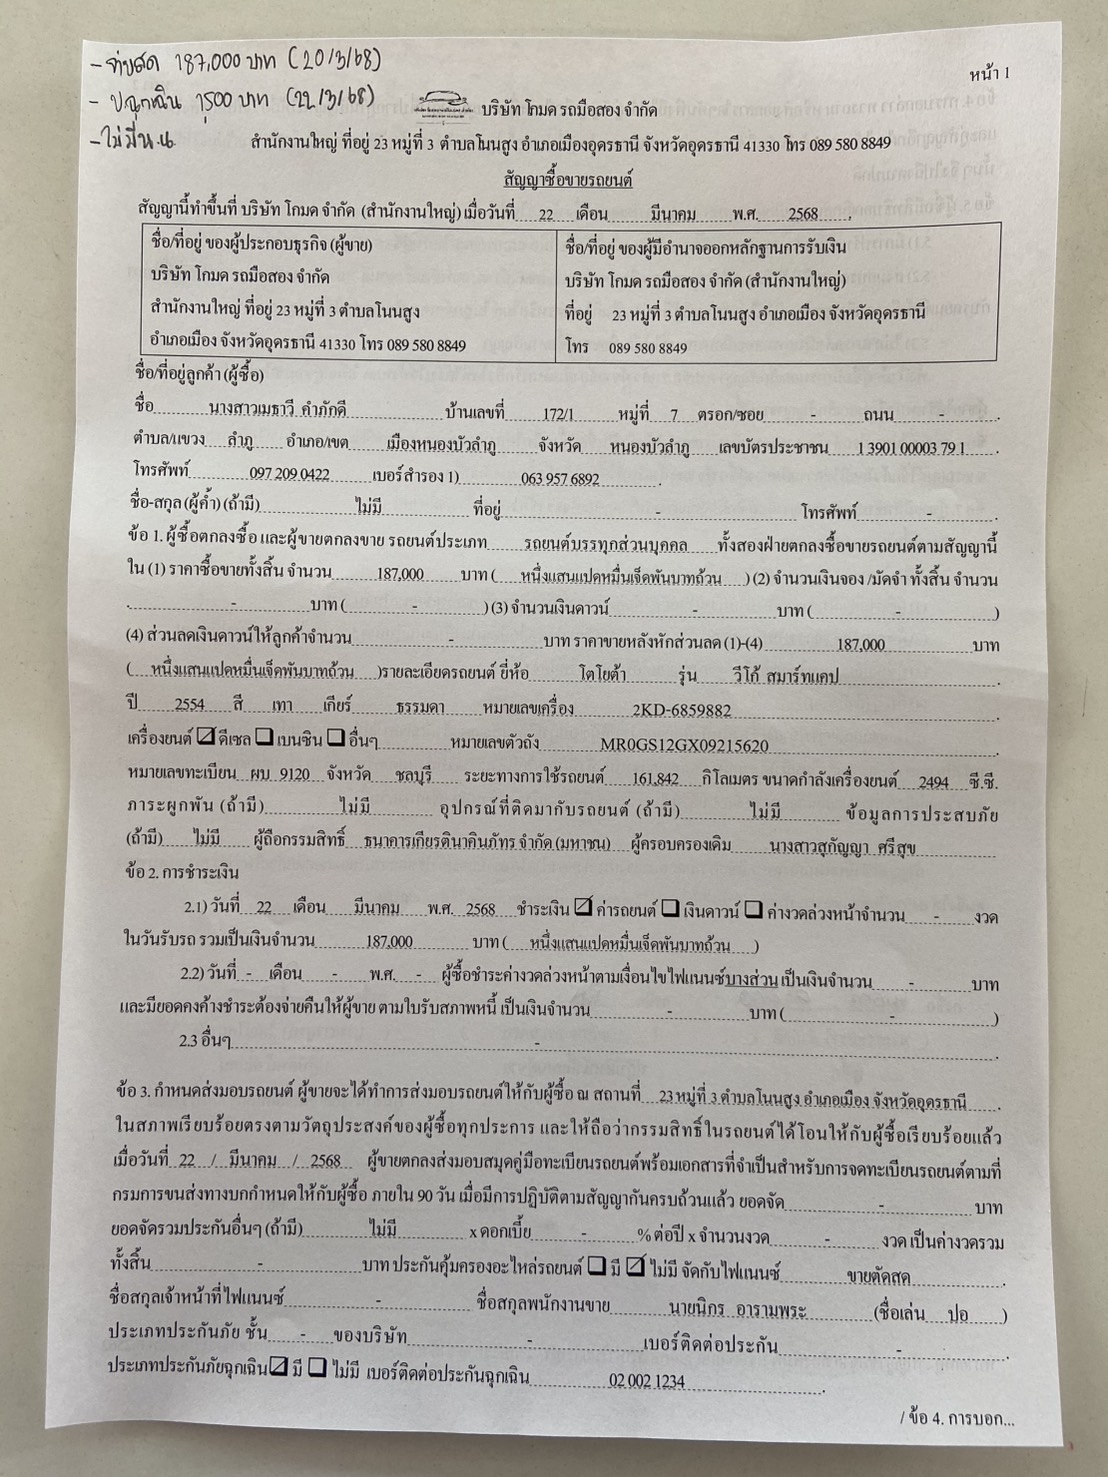 - จ่ายสด 187,000 บาท (20/3/68)
- ปณฉุกเฉิน 1,500 บาท (22/3/68)
- ไม่มีน.น.
หน้า 1
บริษัท โกมด รถมือสอง จำกัด
สำนักงานใหญ่ ที่อยู่ 23 หมู่ที่ 3 ตำบลโนนสูง อำเภอเมืองอุดรธานี จังหวัดอุดรธานี 41330 โทร 089 580 8849
สัญญาซื้อขายรถยนต์
สัญญานี้ทำขึ้นที่ บริษัท โกมด จำกัด (สำนักงานใหญ่) เมื่อวันที่ 22 เดือน มีนาคม พ.ศ. 2568
ชื่อ/ที่อยู่ ของผู้ประกอบธุรกิจ (ผู้ขาย)
บริษัท โกมด รถมือสอง จำกัด
สำนักงานใหญ่ ที่อยู่ 23 หมู่ที่ 3 ตำบลโนนสูง
อำเภอเมือง จังหวัดอุดรธานี 41330 โทร 089 580 8849
ชื่อ/ที่อยู่ ของผู้มีอำนาจออกหลักฐานการรับเงิน
บริษัท โกมด รถมือสอง จำกัด (สำนักงานใหญ่)
ที่อยู่ 23 หมู่ที่ 3 ตำบลโนนสูง อำเภอเมือง จังหวัดอุดรธานี
โทร 089 580 8849
ชื่อ/ที่อยู่ลูกค้า (ผู้ซื้อ)
ชื่อ นางสาวเมธาวี คำภักดี บ้านเลขที่ 172/1 หมู่ที่ 7 ตรอก/ซอย - ถนน -
ตำบล/แขวง ลำภู อำเภอ/เขต เมืองหนองบัวลำภู จังหวัด หนองบัวลำภู เลขบัตรประชาชน 1 3901 00003 79 1
โทรศัพท์ 097 209 0422 เบอร์สำรอง 1) 063 957 6892
ชื่อ-สกุล (ผู้ค้ำ) (ถ้ามี) ไม่มี ที่อยู่ - โทรศัพท์ -
ข้อ 1. ผู้ซื้อตกลงซื้อ และผู้ขายตกลงขาย รถยนต์ประเภท รถยนต์บรรทุกส่วนบุคคล ทั้งสองฝ่ายตกลงซื้อขายรถยนต์ตามสัญญานี้
ใน (1) ราคาซื้อขายทั้งสิ้น จำนวน 187,000 บาท ( หนึ่งแสนแปดหมื่นเจ็ดพันบาทถ้วน ) (2) จำนวนเงินจอง /มัดจำ ทั้งสิ้น จำนวน
- บาท ( - ) (3) จำนวนเงินดาวน์ - บาท ( - )
(4) ส่วนลดเงินดาวน์ให้ลูกค้าจำนวน - บาท ราคาขายหลังหักส่วนลด (1)-(4) 187,000 บาท
( หนึ่งแสนแปดหมื่นเจ็ดพันบาทถ้วน )รายละเอียดรถยนต์ ยี่ห้อ โตโยต้า รุ่น วีโก้ สมาร์ทแคป
ปี 2554 สี เทา เกียร์ ธรรมดา หมายเลขเครื่อง 2KD-6859882
เครื่องยนต์ ☑ ดีเซล ☐ เบนซิน ☐ อื่นๆ หมายเลขตัวถัง MR0GS12GX09215620
หมายเลขทะเบียน ผบ 9120 จังหวัด ชลบุรี ระยะทางการใช้รถยนต์ 161,842 กิโลเมตร ขนาดกำลังเครื่องยนต์ 2494 ซี.ซี.
ภาระผูกพัน (ถ้ามี) ไม่มี อุปกรณ์ที่ติดมากับรถยนต์ (ถ้ามี) ไม่มี ข้อมูลการประสบภัย
(ถ้ามี) ไม่มี ผู้ถือกรรมสิทธิ์ ธนาคารเกียรตินาคินภัทร จำกัด (มหาชน) ผู้ครอบครองเดิม นางสาวสุกัญญา ศรีสุข
ข้อ 2. การชำระเงิน
2.1) วันที่ 22 เดือน มีนาคม พ.ศ. 2568 ชำระเงิน ☑ ค่ารถยนต์ ☐ เงินดาวน์ ☐ ค่างวดล่วงหน้าจำนวน - งวด
ในวันรับรถ รวมเป็นเงินจำนวน 187,000 บาท ( หนึ่งแสนแปดหมื่นเจ็ดพันบาทถ้วน )
2.2) วันที่ - เดือน - พ.ศ. - ผู้ซื้อชำระค่างวดล่วงหน้าตามเงื่อนไขไฟแนนซ์บางส่วน เป็นเงินจำนวน - บาท
และมียอดคงค้างชำระต้องจ่ายคืนให้ผู้ขาย ตามใบรับสภาพหนี้ เป็นเงินจำนวน - บาท ( - )
2.3 อื่นๆ -
ข้อ 3. กำหนดส่งมอบรถยนต์ ผู้ขายจะได้ทำการส่งมอบรถยนต์ให้กับผู้ซื้อ ณ สถานที่ 23 หมู่ที่ 3 ตำบลโนนสูง อำเภอเมือง จังหวัดอุดรธานี
ในสภาพเรียบร้อยตรงตามวัตถุประสงค์ของผู้ซื้อทุกประการ และให้ถือว่ากรรมสิทธิ์ในรถยนต์ได้โอนให้กับผู้ซื้อเรียบร้อยแล้ว
เมื่อวันที่ 22 / มีนาคม / 2568 ผู้ขายตกลงส่งมอบสมุดคู่มือทะเบียนรถยนต์พร้อมเอกสารที่จำเป็นสำหรับการจดทะเบียนรถยนต์ตามที่
กรมการขนส่งทางบกกำหนดให้กับผู้ซื้อ ภายใน 90 วัน เมื่อมีการปฏิบัติตามสัญญากันครบถ้วนแล้ว ยอดจัด - บาท
ยอดจัดรวมประกันอื่นๆ (ถ้ามี) ไม่มี x ดอกเบี้ย - % ต่อปี x จำนวนงวด - งวด เป็นค่างวดรวม
ทั้งสิ้น - บาท ประกันคุ้มครองอะไหล่รถยนต์ ☐ มี ☑ ไม่มี จัดกับไฟแนนซ์ ขายตัดสด
ชื่อสกุลเจ้าหน้าที่ไฟแนนซ์ - ชื่อสกุลพนักงานขาย นายนิกร อารามพระ (ชื่อเล่น ปอ )
ประเภทประกันภัย ชั้น - ของบริษัท - เบอร์ติดต่อประกัน -
ประเภทประกันภัยฉุกเฉิน ☑ มี ☐ ไม่มี เบอร์ติดต่อประกันฉุกเฉิน 02 002 1234
/ ข้อ 4. การบอก...